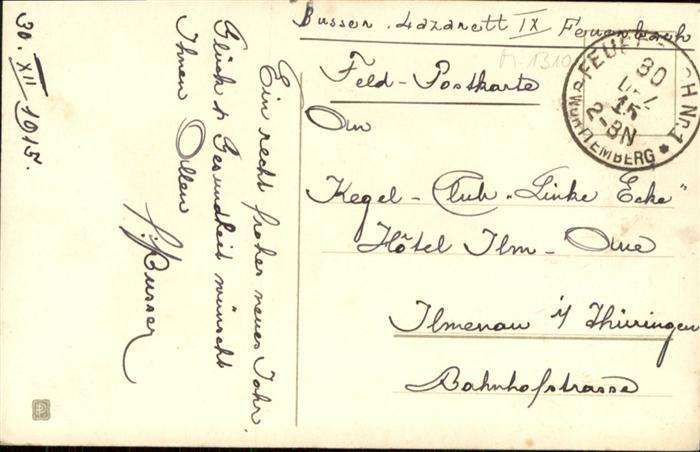 30. XII 1915.
Ein recht frohes neues Jahr,
Glück & Gesundheit wünscht
Ihnen Allen
Busser
Busser. Lazarett IX Feuerbach
Feld-Postkarte
An
Kegel-Club "Linke Ecke"
Hôtel Ilm-Aue
Ilmenau i/ Thüringen
Bahnhofstrasse
30
15
2-3N
WÜRTTEMBERG
H Nr. 1